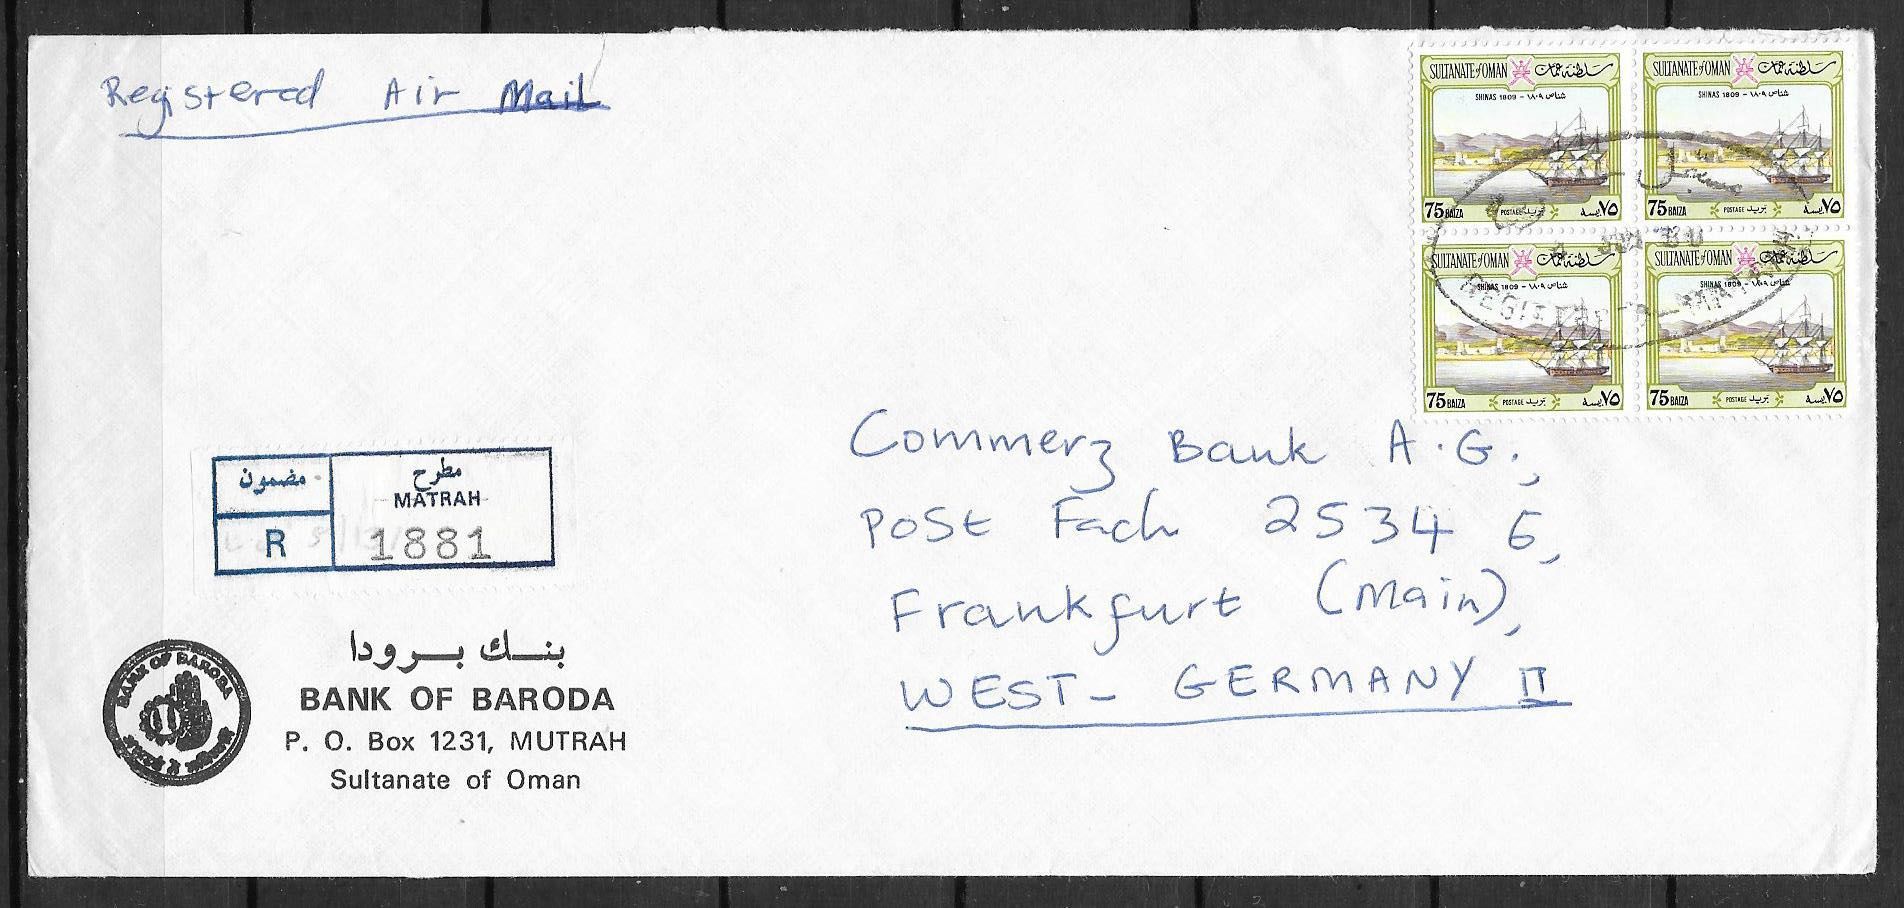 Registered Air Mail
SULTANATE of OMAN سلطنة عمان
SHINAS 1809 - شناص ١٨٠٩
75 BAIZA POSTAGE بريد ٧٥ بيسه
SULTANATE of OMAN سلطنة عمان
SHINAS 1809 - شناص ١٨٠٩
75 BAIZA POSTAGE بريد ٧٥ بيسه
SULTANATE of OMAN سلطنة عمان
SHINAS 1809 - شناص ١٨٠٩
75 BAIZA POSTAGE بريد ٧٥ بيسه
SULTANATE of OMAN سلطنة عمان
SHINAS 1809 - شناص ١٨٠٩
75 BAIZA POSTAGE بريد ٧٥ بيسه
مسجل
Commerz Bank A.G.,
Post Fach 2534 6,
Frankfurt (Main),
WEST- GERMANY II
مضمون
R
مطرح
MATRAH
1881
BANK OF BARODA
بنك برودا
BANK OF BARODA
P. O. Box 1231, MUTRAH
Sultanate of Oman